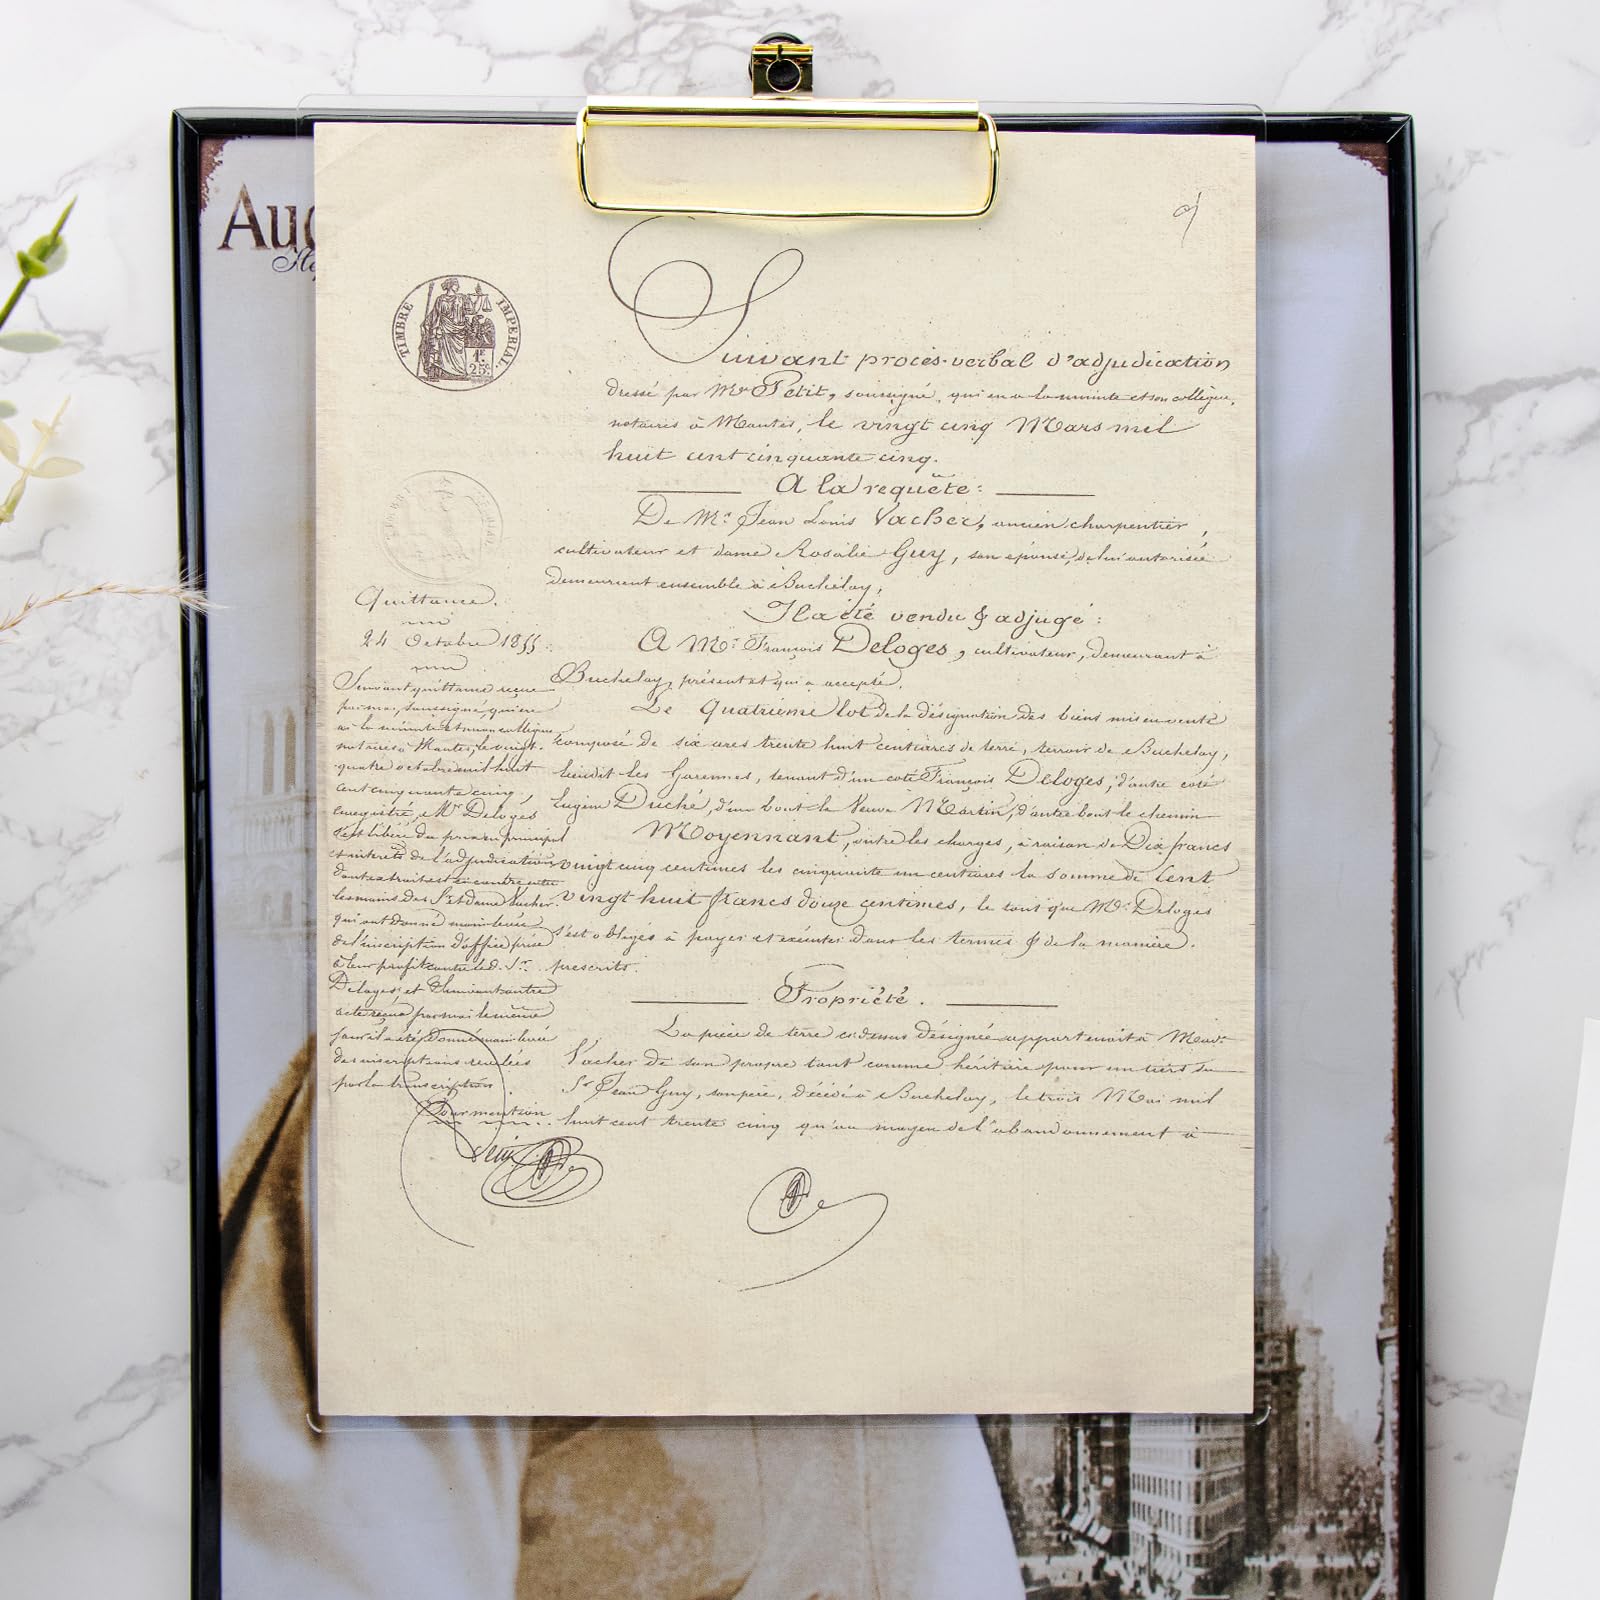 Au
TIMBRE IMPERIAL
1F.
25c
Suivant procès-verbal d'adjudication
dressé par Me Petit, soussigné, qui en a la minute et son collègue,
notaires à Mantes, le vingt cinq Mars mil
huit cent cinquante cinq.
A la requête:
De Mr. Jean Louis Vacher, ancien charpentier,
cultivateur et dame Rosalie Guy, son épouse, de lui autorisée
demeurant ensemble à Buchelay,
Il a été vendu & adjugé:
A Mr. François Deloges, cultivateur, demeurant à
Buchelay, présent et qui a accepté.
Le Quatrième lot de la désignation des biens mis en vente
composé de six ares trente huit centiares de terre, terroir de Buchelay,
lieudit les Garennes, tenant d'un coté François Deloges, d'autre coté
Eugène Duché, d'un bout la Veuve Martin, d'autre bout le chemin
Moyennant, outre les charges, à raison de Dix francs
vingt cinq centimes les cinquante un centiares la somme de Cent
vingt huit francs douze centimes, le tout que Mr. Deloges
s'est obligés à payer et exécuter dans les termes & de la manière
prescrits.
Propriété.
La pièce de terre ci-dessus désignée appartenait à Mad.
Vacher de son propre tant comme héritière pour un tiers du
Sr Jean Guy, son père, décédé à Buchelay, le trois Mai mil
huit cent trente cinq qu'au moyen de l'abandonnement à
Quittance.
24 Octobre 1855.
Suivant quittance reçue
par moi, soussigné, qui en
ai la minute et mon collègue
notaires à Mantes, le vingt
quatre octobre mil huit
cent cinquante cinq,
enregistré, Mr Deloges
s'est libéré du prix en principal
et intérêts de l'adjudication
dont extrait est ci contre entre
les mains des St et dame Vacher
qui ont donné main levée
de l'inscription d'office prise
à leur profit contre led. Sr.
Deloges, et Suivant autre
acte reçu par moi le même
jour il a été donné main levée
des inscriptions révélées
par la transcription
Pour mention